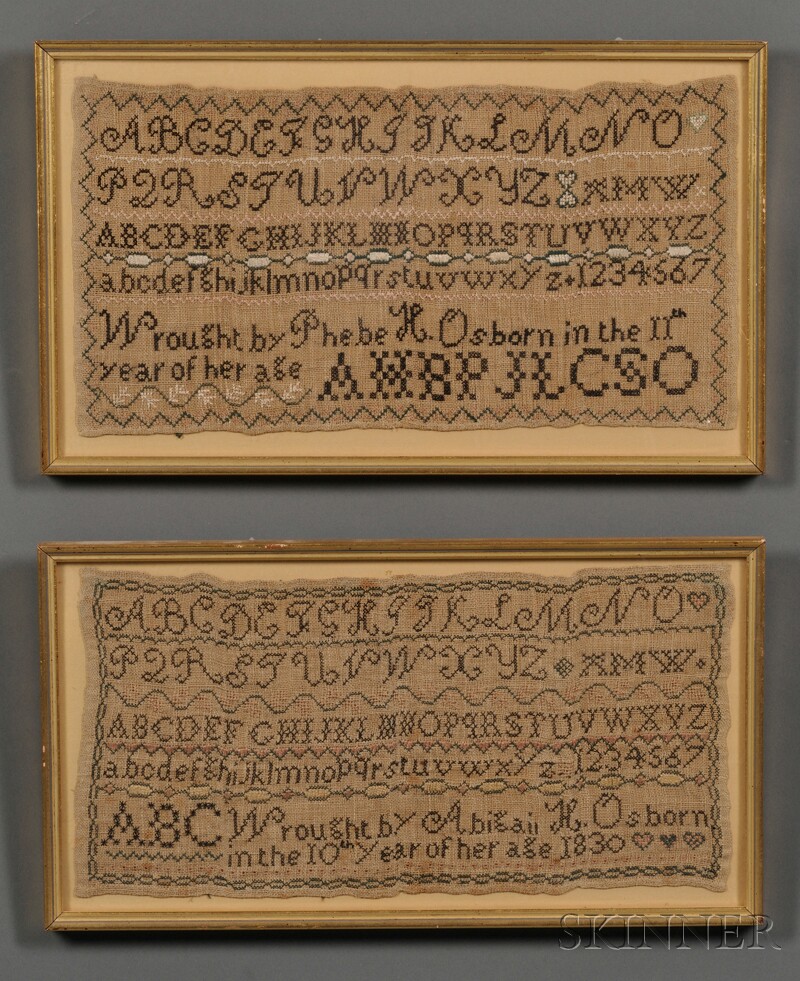 ABCDEFGHIJKLMNO
PQRSTUVWXYZ AMW
ABCDEFGHIJKLMNOPQRSTUVWXYZ
abcdefghijklmnopqrstuvwxyz 1234567
Wrought by Phebe H. Osborn in the 11th
year of her age AMBPJLCSO
ABCDEFGHIJKLMNO
PQRSTUVWXYZ AMW
ABCDEFGHIJKLMNOPQRSTUVWXYZ
abcdefghijklmnopqrstuvwxyz 1234567
ABC Wrought by Abigail H. Osborn
in the 10th year of her age 1830
SKINNER